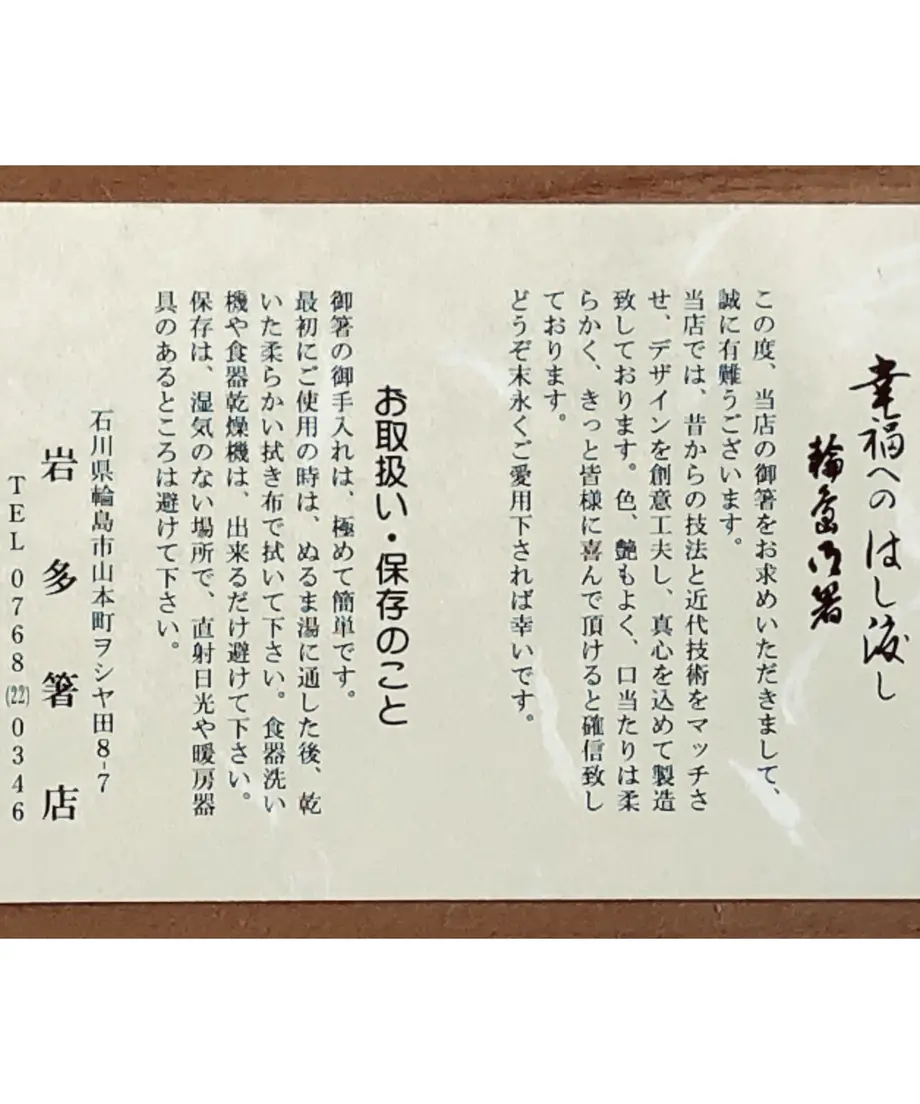 幸福へのはし渡し
輪島御箸
この度、当店の御箸をお求めいただきまして、
誠に有難うございます。
当店では、昔からの技法と近代技術をマッチさ
せ、デザインを創意工夫し、真心を込めて製造
致しております。色、艶もよく、口当たりは柔
らかく、きっと皆様に喜んで頂けると確信致し
ております。
どうぞ末永くご愛用下されば幸いです。
お取扱い・保存のこと
御箸の御手入れは、極めて簡単です。
最初にご使用の時は、ぬるま湯に通した後、乾
いた柔らかい拭き布で拭いて下さい。食器洗い
機や食器乾燥機は、出来るだけ避けて下さい。
保存は、湿気のない場所で、直射日光や暖房器
具のあるところは避けて下さい。
石川県輪島市山本町ヲシヤ田8-7
岩多箸店
TEL0768(22)0346